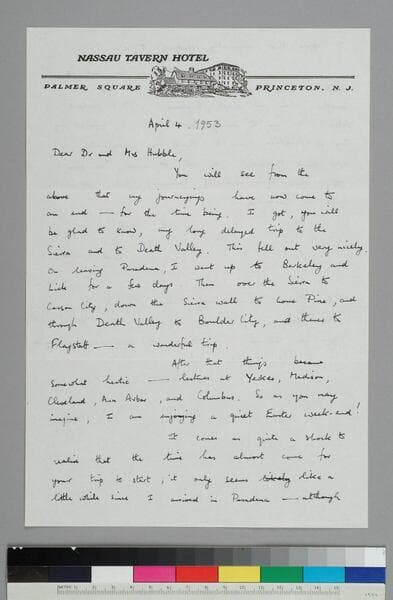 NASSAU TAVERN HOTEL
PALMER SQUARE PRINCETON, N. J.
April 4. 1953
Dear Dr and Mrs Hubble,
You will see from the
above that my journeyings have now come to
an end — for the time being. I got, you will
be glad to know, my long delayed trip to the
Sierra and to Death Valley. This fell out very nicely.
On leaving Pasadena, I went up to Berkeley and
Lick for a few days. Then over the Sierra to
Carson City, down the Sierra wall to Lone Pine, and
through Death Valley to Boulder City, and thence to
Flagstaff — a wonderful trip.
After that things became
somewhat hectic — lectures at Yerkes, Madison,
Cleveland, Ann Arbor, and Columbus. So as you may
imagine, I am enjoying a quiet Easter week-end!
It comes as quite a shock to
realise that the time has almost come for
your trip to start; it only seems like a
little while since I arrived in Pasadena — although